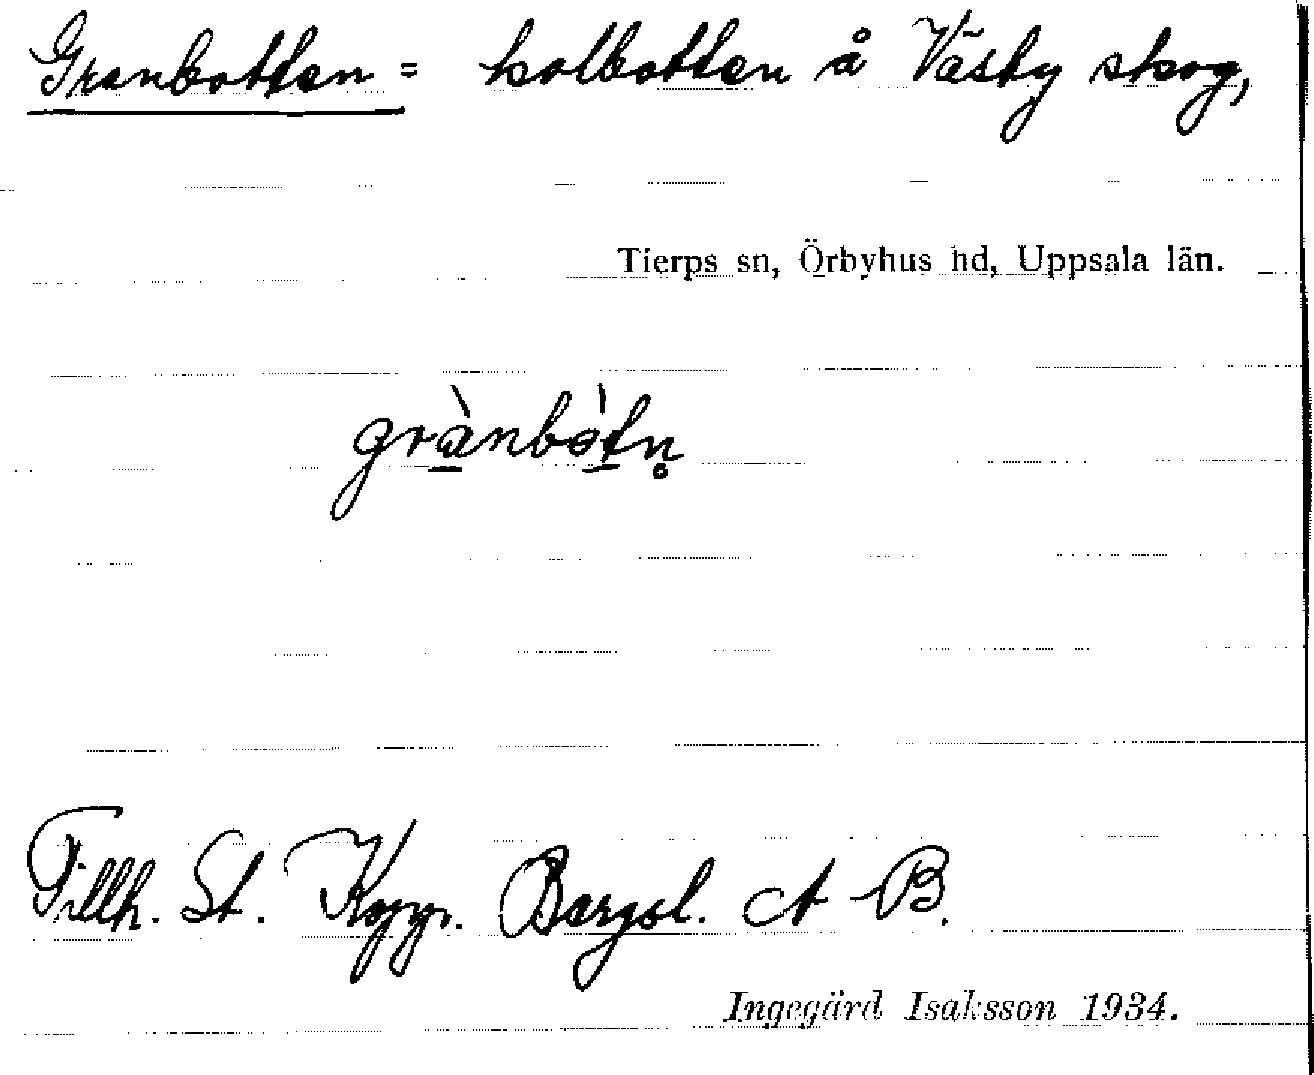 Granbotten = kolbotten å Väsby skog,
Tierps sn, Örbyhus hd, Uppsala län.
grànbòtn̥
Tillh. St. Kopp. Bergsl. A B.
Ingegärd Isaksson 1934.